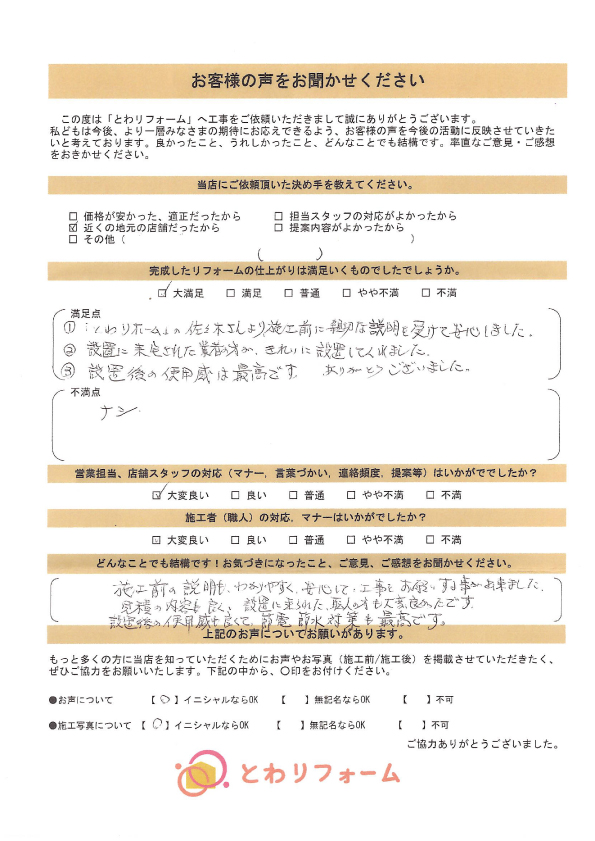 お客様の声をお聞かせください
この度は「とわリフォーム」へ工事をご依頼いただきまして誠にありがとうございます。
私どもは今後、より一層みなさまの期待にお応えできるよう、お客様の声を今後の活動に反映させていきた
いと考えております。良かったこと、うれしかったこと、どんなことでも結構です。率直なご意見・ご感想
をおきかせください。
当店にご依頼頂いた決め手を教えてください。
□ 価格が安かった、適正だったから □ 担当スタッフの対応がよかったから
☑ 近くの地元の店舗だったから □ 提案内容がよかったから
□ その他（ ）
（ ）
完成したリフォームの仕上がりは満足いくものでしたでしょうか。
☑ 大満足 □ 満足 □ 普通 □ やや不満 □ 不満
満足点
① 「とわりホーム」の佐々木さんより施工前に親切な説明を受けて安心しました.
② 設置に来宅された業者の方が、きれいに設置してくれました.
③ 設置後の使用感は最高です ありがとうございました。
不満点
ナシ
営業担当、店舗スタッフの対応（マナー，言葉づかい，連絡頻度，提案等）はいかがででしたか？
☑ 大変良い □ 良い □ 普通 □ やや不満 □ 不満
施工者（職人）の対応，マナーはいかがでしたか？
☑ 大変良い □ 良い □ 普通 □ やや不満 □ 不満
どんなことでも結構です！お気づきになったこと、ご意見、ご感想をお聞かせください。
施工前の説明も、わかりやすく、安心して工事をお願いする事が出来ました.
見積の内容も良く、設置に来られた、職人の方も大変良かったです.
設置後の使用感も良くて、節電 節水対策も最高です。
上記のお声についてお願いがあります。
もっと多くの方に当店を知っていただくためにお声やお写真（施工前/施工後）を掲載させていただきたく、
ぜひご協力をお願いいたします。下記の中から、〇印をお付けください。
●お声について 【 〇 】イニシャルならOK 【 】無記名ならOK 【 】不可
●施工写真について 【 〇 】イニシャルならOK 【 】無記名ならOK 【 】不可
ご協力ありがとうございました。
とわリフォーム